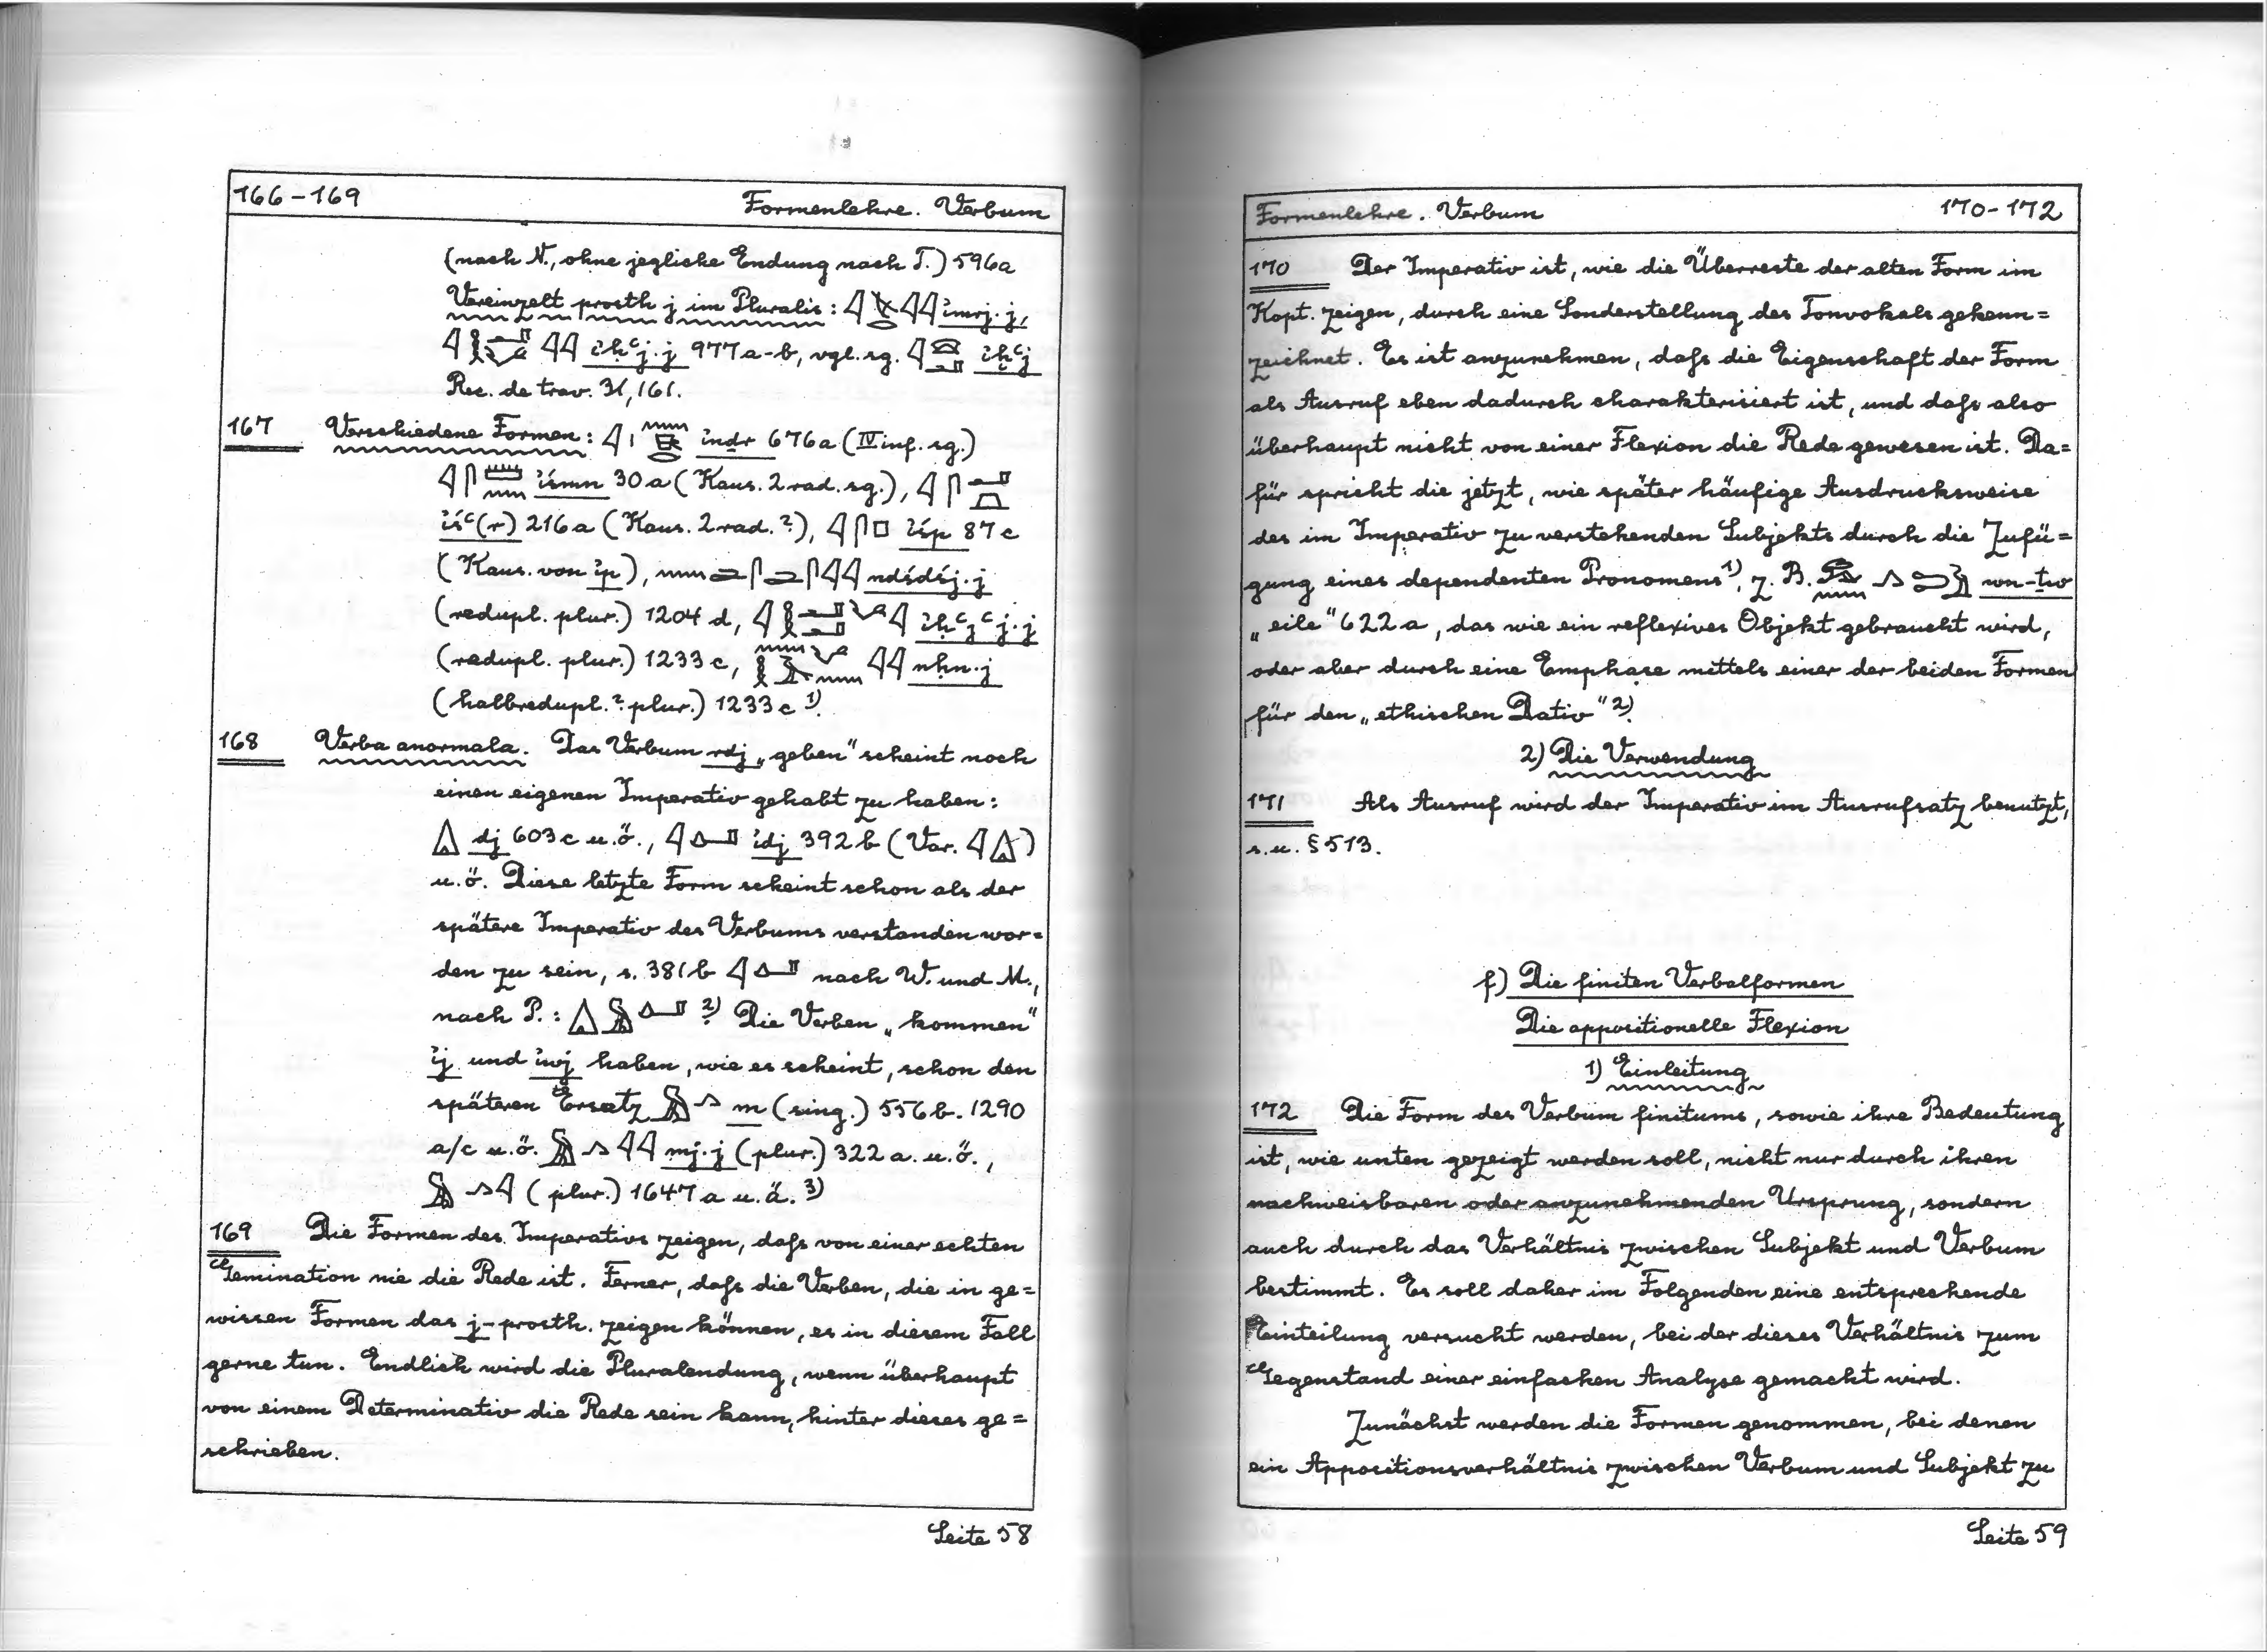 166-169 Formenlehre. Verbum
(nach N., ohne jegliche Endung nach T.) 596a
Vereinzelt prosth j im Pluralis: 𓇋𓌸𓂋𓇋𓇋 i҆mrj.j,
i҆ḥꜥj.j 977a-b, vgl. sg. i҆ḫꜥj
Rec. de trav. 31, 161.
167 Verschiedene Formen: i҆nḏr 676a (IV inf. sg.)
𓇋𓋴𓏠𓈖 i҆śmn 30a (Kaus. 2rad. sg.), 𓇋𓋴
i҆śꜥ(r) 216a (Kaus. 2rad.?), 𓇋𓋴𓊪 i҆śp 87c
(Kaus. von i҆p), 𓈖𓂧𓋴𓂧𓋴𓇋𓇋 ndśdśj.j
(redupl. plur.) 1204d,
(redupl. plur.) 1233c, 𓇋𓇋 nḥn.j
(halbredupl.? plur.) 1233c 1).
168 Verba anormala. Das Verbum rdj „geben" scheint noch
einen eigenen Imperativ gehabt zu haben:
𓏙 dj 603c u.ö., i҆dj 392b (Var. 𓇋𓏙)
u.ö. Diese letzte Form scheint schon als der
spätere Imperativ des Verbums verstanden wor=
den zu sein, s. 381b nach W. und M.,
nach P.: 2). Die Verben „kommen"
i҆j und i҆wj haben, wie es scheint, schon den
späteren Ersatz 𓅓𓂻 m (sing.) 556b. 1290
a/c u.ö. 𓅓𓂻𓇋𓇋 mj.j (plur.) 322a. u.ö.,
𓅓𓂻𓇋 (plur.) 1647a u.ä. 3)
169 Die Formen des Imperativs zeigen, daſs von einer echten
Gemination nie die Rede ist. Ferner, daſs die Verben, die in ge=
wissen Formen das j-prosth. zeigen können, es in diesem Fall
gerne tun. Endlich wird die Pluralendung, wenn überhaupt
von einem Determinativ die Rede sein kann, hinter dieses ge=
schrieben.
Seite 58
Formenlehre. Verbum 170-172
170 Der Imperativ ist, wie die Überreste der alten Form im
Kopt. zeigen, durch eine Sonderstellung des Tonvokals gekenn=
zeichnet. Es ist anzunehmen, daſs die Eigenschaft der Form
als Ausruf eben dadurch charakterisiert ist, und daſs also
überhaupt nicht von einer Flexion die Rede gewesen ist. Da=
für spricht die jetzt, wie später häufige Ausdrucksweise
des im Imperativ zu verstehenden Subjekts durch die Zufü=
gung eines dependenten Pronomens 1), z. B. 𓃹𓈖𓂻𓍿𓅱 wn-ṯw
„eile" 622a, das wie ein reflexives Objekt gebraucht wird,
oder aber durch eine Emphase mittels einer der beiden Formen
für den „ethischen Dativ" 2).
2) Die Verwendung
171 Als Ausruf wird der Imperativ im Ausrufsatz benutzt,
s.u. § 513.
f) Die finiten Verbalformen
Die appositionelle Flexion
1) Einleitung
172 Die Form des Verbum finitums, sowie ihre Bedeutung
ist, wie unten gezeigt werden soll, nicht nur durch ihren
nachweisbaren oder anzunehmenden Ursprung, sondern
auch durch das Verhältnis zwischen Subjekt und Verbum
bestimmt. Es soll daher im Folgenden eine entsprechende
Einteilung versucht werden, bei der dieses Verhältnis zum
Gegenstand einer einfachen Analyse gemacht wird.
Zunächst werden die Formen genommen, bei denen
ein Appositionsverhältnis zwischen Verbum und Subjekt zu
Seite 59